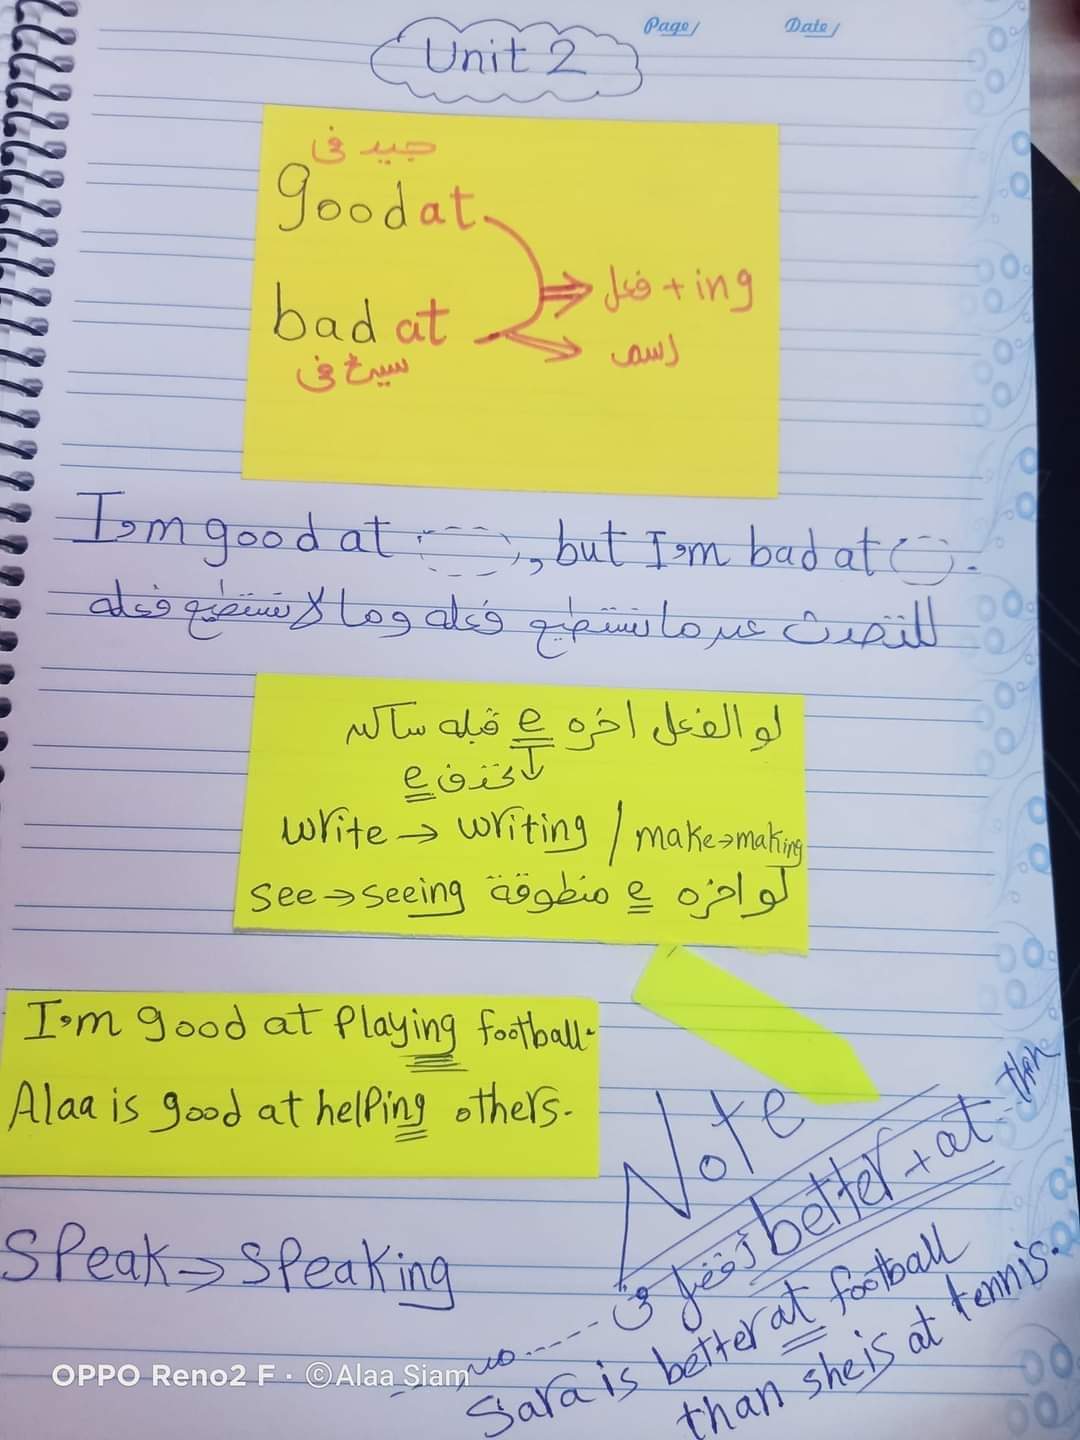 Page/ Date/
Unit 2
جيد فى
good at
bad at
سيئ فى
فعل + ing
اسم
I'm good at , but I'm bad at .
للتحدث عن ما نستطيع فعله وما لا نستطيع فعله
لو الفعل اخره e قبله ساكن
نحذف e
write → writing / make → making
لو اخره e منطوقة see → seeing
I'm good at playing football.
Alaa is good at helping others.
Note
better + at than
أفضل فى من
Speak → Speaking
Sara is better at football
than she is at tennis.
OPPO Reno2 F · ©Alaa Siam